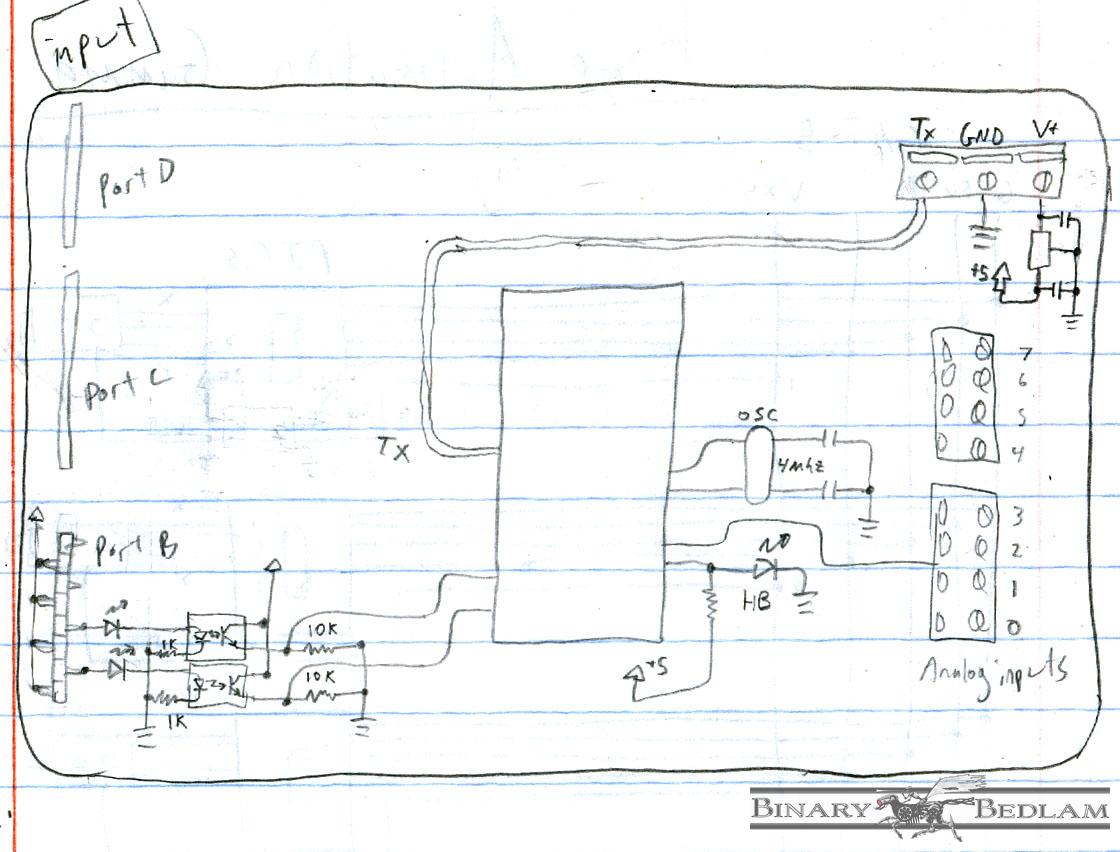 input
Tx GND V+
Port D
+5
7
6
5
4
Port C
OSC
4Mhz
TX
3
2
1
0
Port B
HB
1K
10K
10K
1K
+5
Analog inputs
BINARY BEDLAM